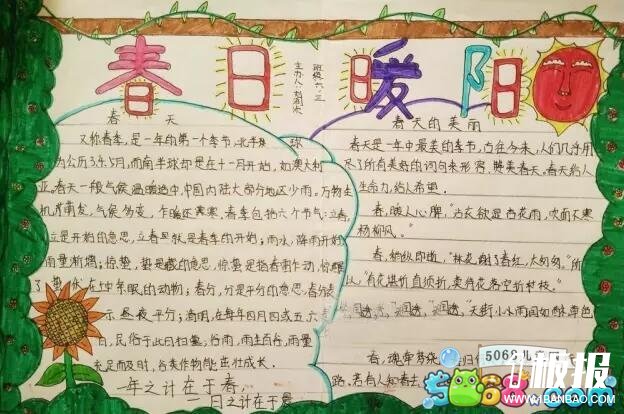 春日暖阳
班级六、三
主办人：
春 天
又称春季，是一年的第一个季节，北半球
为公历3、4、5月，而南半球却是在十一月开始，如澳大利
亚。春天一般气候温暖适中，中国内陆大部分地区少雨。万物生
机 萌发，气候多变，乍暖还寒。春季包括六个节气：立春，
立是开始的意思，立春 就是春季的开始；雨水，降雨开始
雨量渐增；惊蛰，蛰是藏的意思，惊蛰是指春雷乍动，惊醒
了蛰伏在 中冬眠的动物；春分，分是平分的意思，春分表
示昼夜平分；清明，在每年四月四或五六
日，民俗于此日扫墓；谷雨，雨生百谷，雨量
充足而及时，谷类作物能茁壮成长。
一年之计在于春
一日之计在于晨
春天的美丽
春天是一年中最美的季节，古往今来，人们几乎用
尽了所有美好的词句来形容，赞美春天。春天给人
生命力，给人希望。
春，暖人心脾，“沾衣欲湿杏花雨，吹面不寒
杨柳风”。
春，稍纵即逝，“林花谢了春红，太匆匆。”所
以“有花堪折直须折，莫待花落空折枝”。
天街小雨润如酥，草色
春，魂牵梦绕
路，若有人知春去
5068儿
5068
1板报
WWW.1BANBAO.COM